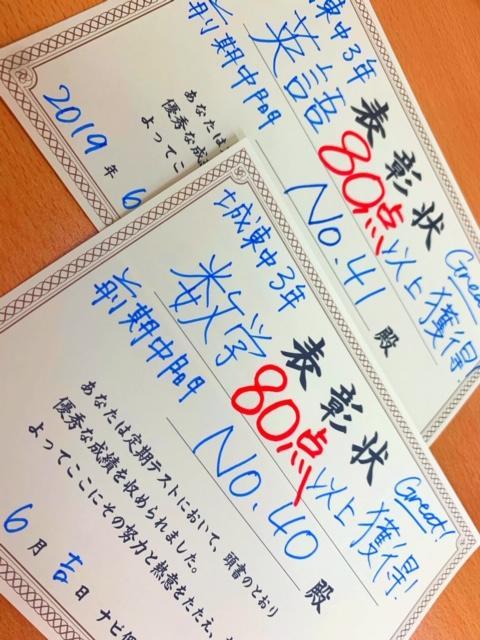 城東中3年
英語
前期中間
表彰状
80点以上獲得!
Great!
No.41 殿
あなたは
優秀な成
よってここ
2019年
6
城東中3年
数学
前期中間
表彰状
80点以上獲得!
Great!
No.40 殿
あなたは定期テストにおいて、頭書のとおり
優秀な成績を収められました。
よってここにその努力と熱意をたたえ、
6月吉日
ナビ個